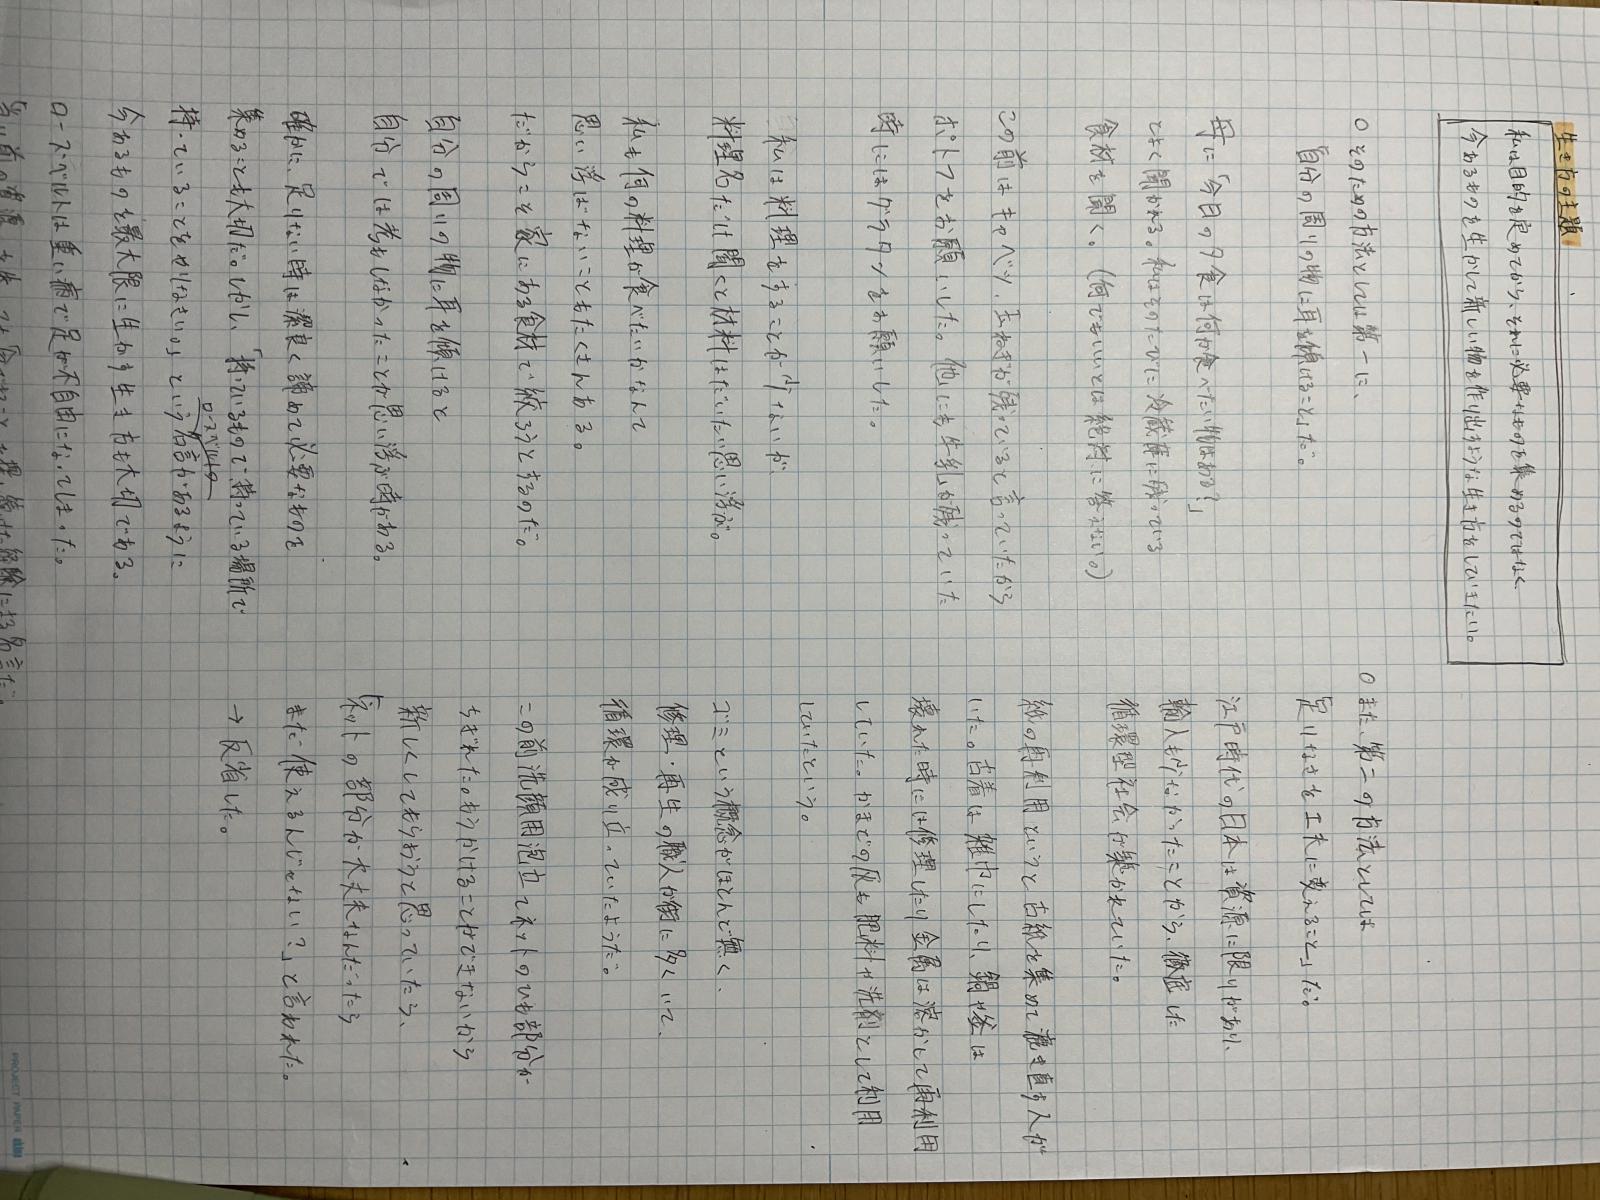 生き方の主題
私は目的を定めてから、それに必要なものを集めるのではなく
今あるものを生かして新しい物を作り出すような生き方をしていきたい。
○そのための方法としては第一に、
「自分の周りの物に耳を傾けること」だ。
母に「今日の夕食は何か食べたい物はある?」
とよく聞かれる。私はそのたびに冷蔵庫に残っている
食材を聞く。(何でもいいとは絶対に答えない。)
この前はキャベツ、玉ねぎが残っていると言っていたから
ポトフをお願いした。他にも牛乳が残っていた
時にはグラタンをお願いした。
私は料理をすることが少ないが
料理名だけ聞くと材料はだいたい思い浮ぶ。
私も何の料理が食べたいかなんて
思い浮ばないこともたくさんある。
だからこそ家にある食材で絞ろうとするのだ。
自分の周りの物に耳を傾けると
自分では考えもしなかったことが思い浮ぶ時がある。
確かに、足りない時は潔く諦めて必要なものを
集めることも大切だ。しかし、「持っているもので、持っている場所で
持っていることをやりなさい。」という名言があるように
ルーズベルトの
今あるものを最大限に生かす生き方も大切である。
ローズベルトは重い病で足が不自由になってしまった。
○また、第二の方法としては
「足りなさを工夫に変えること」だ。
江戸時代の日本は資源に限りがあり、
輸入も少なかったことから、徹底した
循環型社会が築かれていた。
紙の再利用というと古紙を集めて漉き直す人が
いた。古着は雑巾にしたり、鍋や釜は
壊れた時には修理したり金属は溶かして再利用
していた。かまどの灰も肥料や洗剤として利用
していたという。
ゴミという概念がほとんど無く、
修理・再生の職人が街に多くいて、
循環が成り立っていたようだ。
この前洗顔用泡立てネットのひも部分が
ちぎれた。もうかけることができないから
新しくしてもらおうと思っていたら、
「ネットの部分が大丈夫なんだったら
まだ使えるんじゃない?」と言われた。
→反省した。
PROJECT PAPER